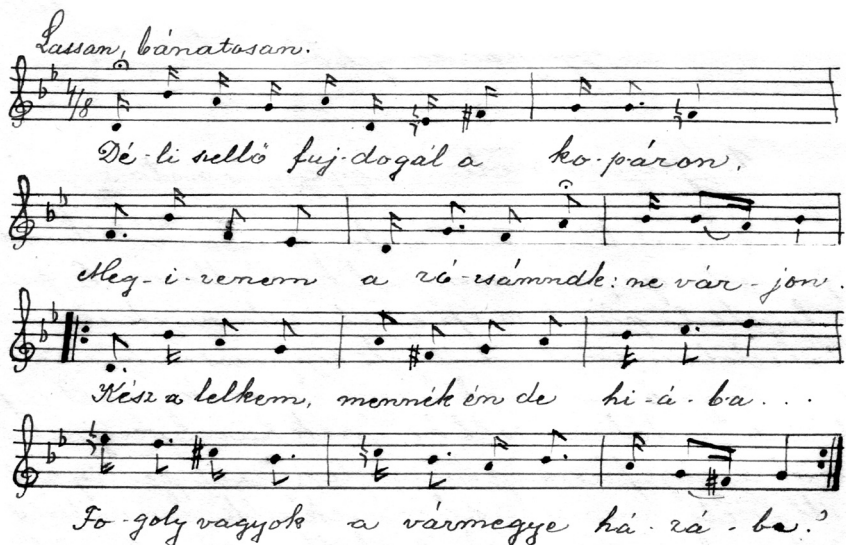 Lassan, bánatosan.
4/8
Dé-li szellő fuj-dogál a ko-páron.
Meg-i-zenem a ró-zsámnak: ne vár-jon.
Kész a lelkem, mennék én de hi-á-ba...
Fo-goly vagyok a vármegye há-zá-ba?